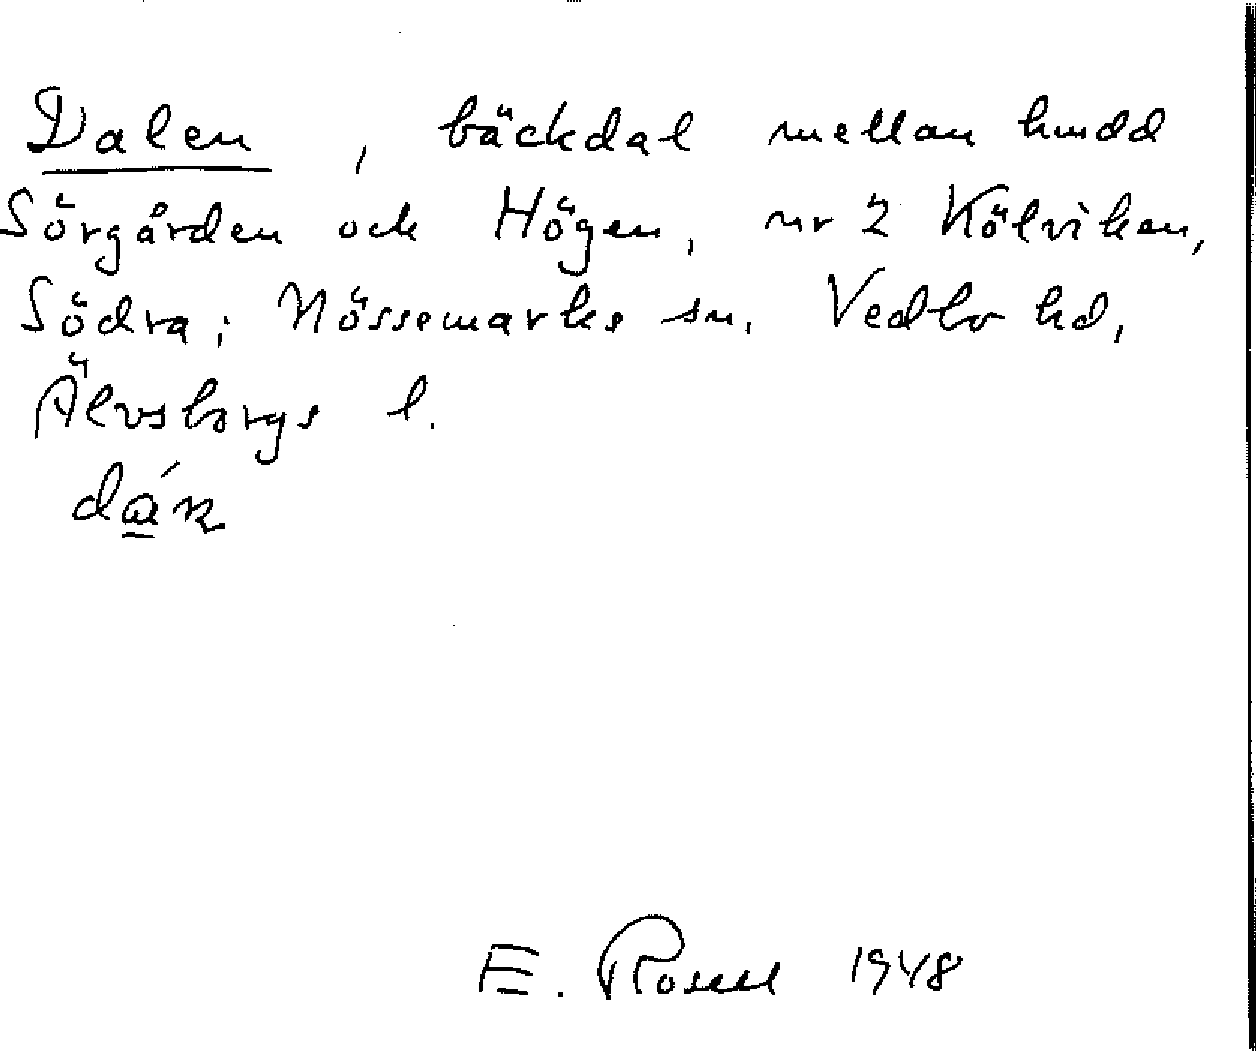 Dalen, bäckdal mellan hmdd
Sörgården och Högen, nr 2 Kölviken,
Södra; Nössemarks sn. Vedbo hd,
Älvsborgs l.
E. Rosell 1948